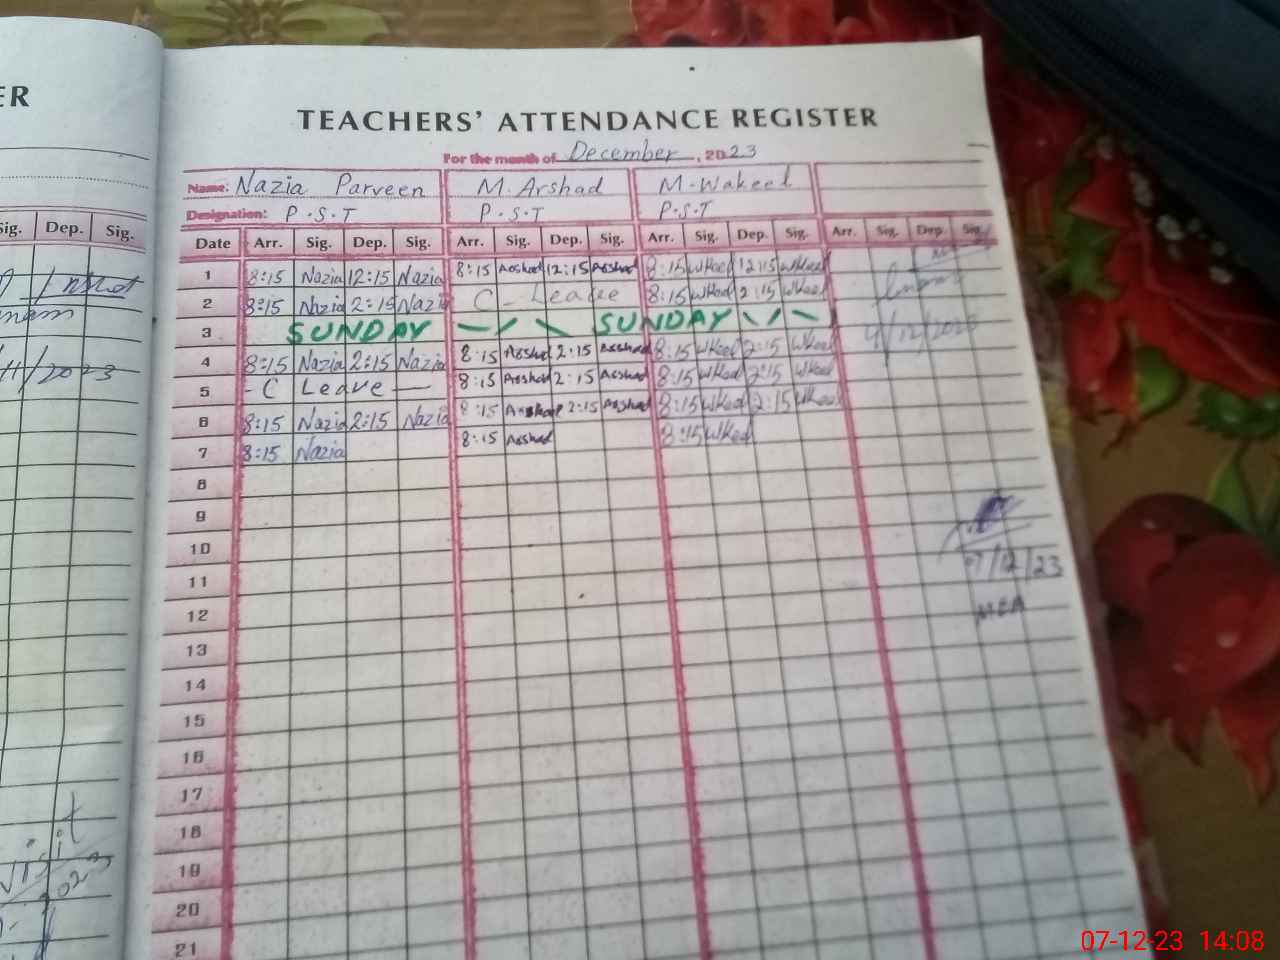 ER
TEACHERS' ATTENDANCE REGISTER
For the month of December, 2023
Name: Nazia Parveen M. Arshad M. Wakeel
Designation: P.S.T P.S.T P.S.T
Sig. Dep. Sig.
Date Arr. Sig. Dep. Sig. Arr. Sig. Dep. Sig. Arr. Sig. Dep. Sig. Arr. Sig. Dep. Sig.
1 8:15 Nazia 12:15 Nazia 8:15 Arshad 12:15 Arshad 8:15 WKeel 12:15 WKeel
2 8:15 Nazia 2:15 Nazia C - Leave 8:15 WKeel 2:15 WKeel
3 SUNDAY SUNDAY
4/12/2023
4 8:15 Nazia 2:15 Nazia 8:15 Arshad 2:15 Arshad 8:15 WKeel 2:15 WKeel
11/2023
5 - C Leave - 8:15 Arshad 2:15 Arshad 8:15 WKeel 2:15 WKeel
6 8:15 Nazia 2:15 Nazia 8:15 Arshad 2:15 Arshad 8:15 WKeel 2:15 WKeel
7 8:15 Nazia 8:15 Arshad 8:15 WKeel
8
9
10
7/12/23
11
12
MEA
13
14
15
16
17
18
visit
19
2023
20
21
07-12-23 14:08